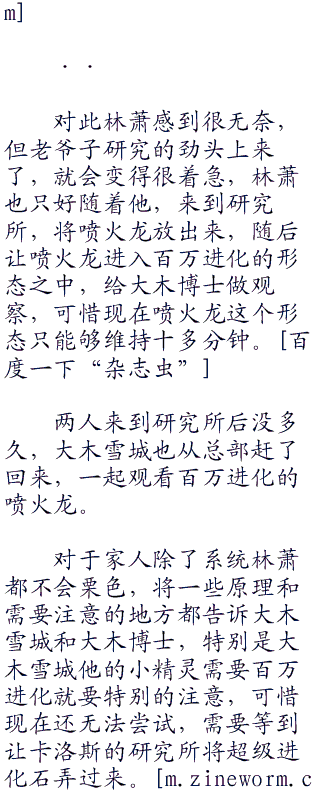 m]
. .
对此林萧感到很无奈，
但老爷子研究的劲头上来
了，就会变得很着急，林萧
也只好随着他，来到研究
所，将喷火龙放出来，随后
让喷火龙进入百万进化的形
态之中，给大木博士做观
察，可惜现在喷火龙这个形
态只能够维持十多分钟。[百
度一下“杂志虫”]
两人来到研究所后没多
久，大木雪城也从总部赶了
回来，一起观看百万进化的
喷火龙。
对于家人除了系统林萧
都不会栗色，将一些原理和
需要注意的地方都告诉大木
雪城和大木博士，特别是大
木雪城他的小精灵需要百万
进化就要特别的注意，可惜
现在还无法尝试，需要等到
让卡洛斯的研究所将超级进
化石弄过来。[m.zineworm.c